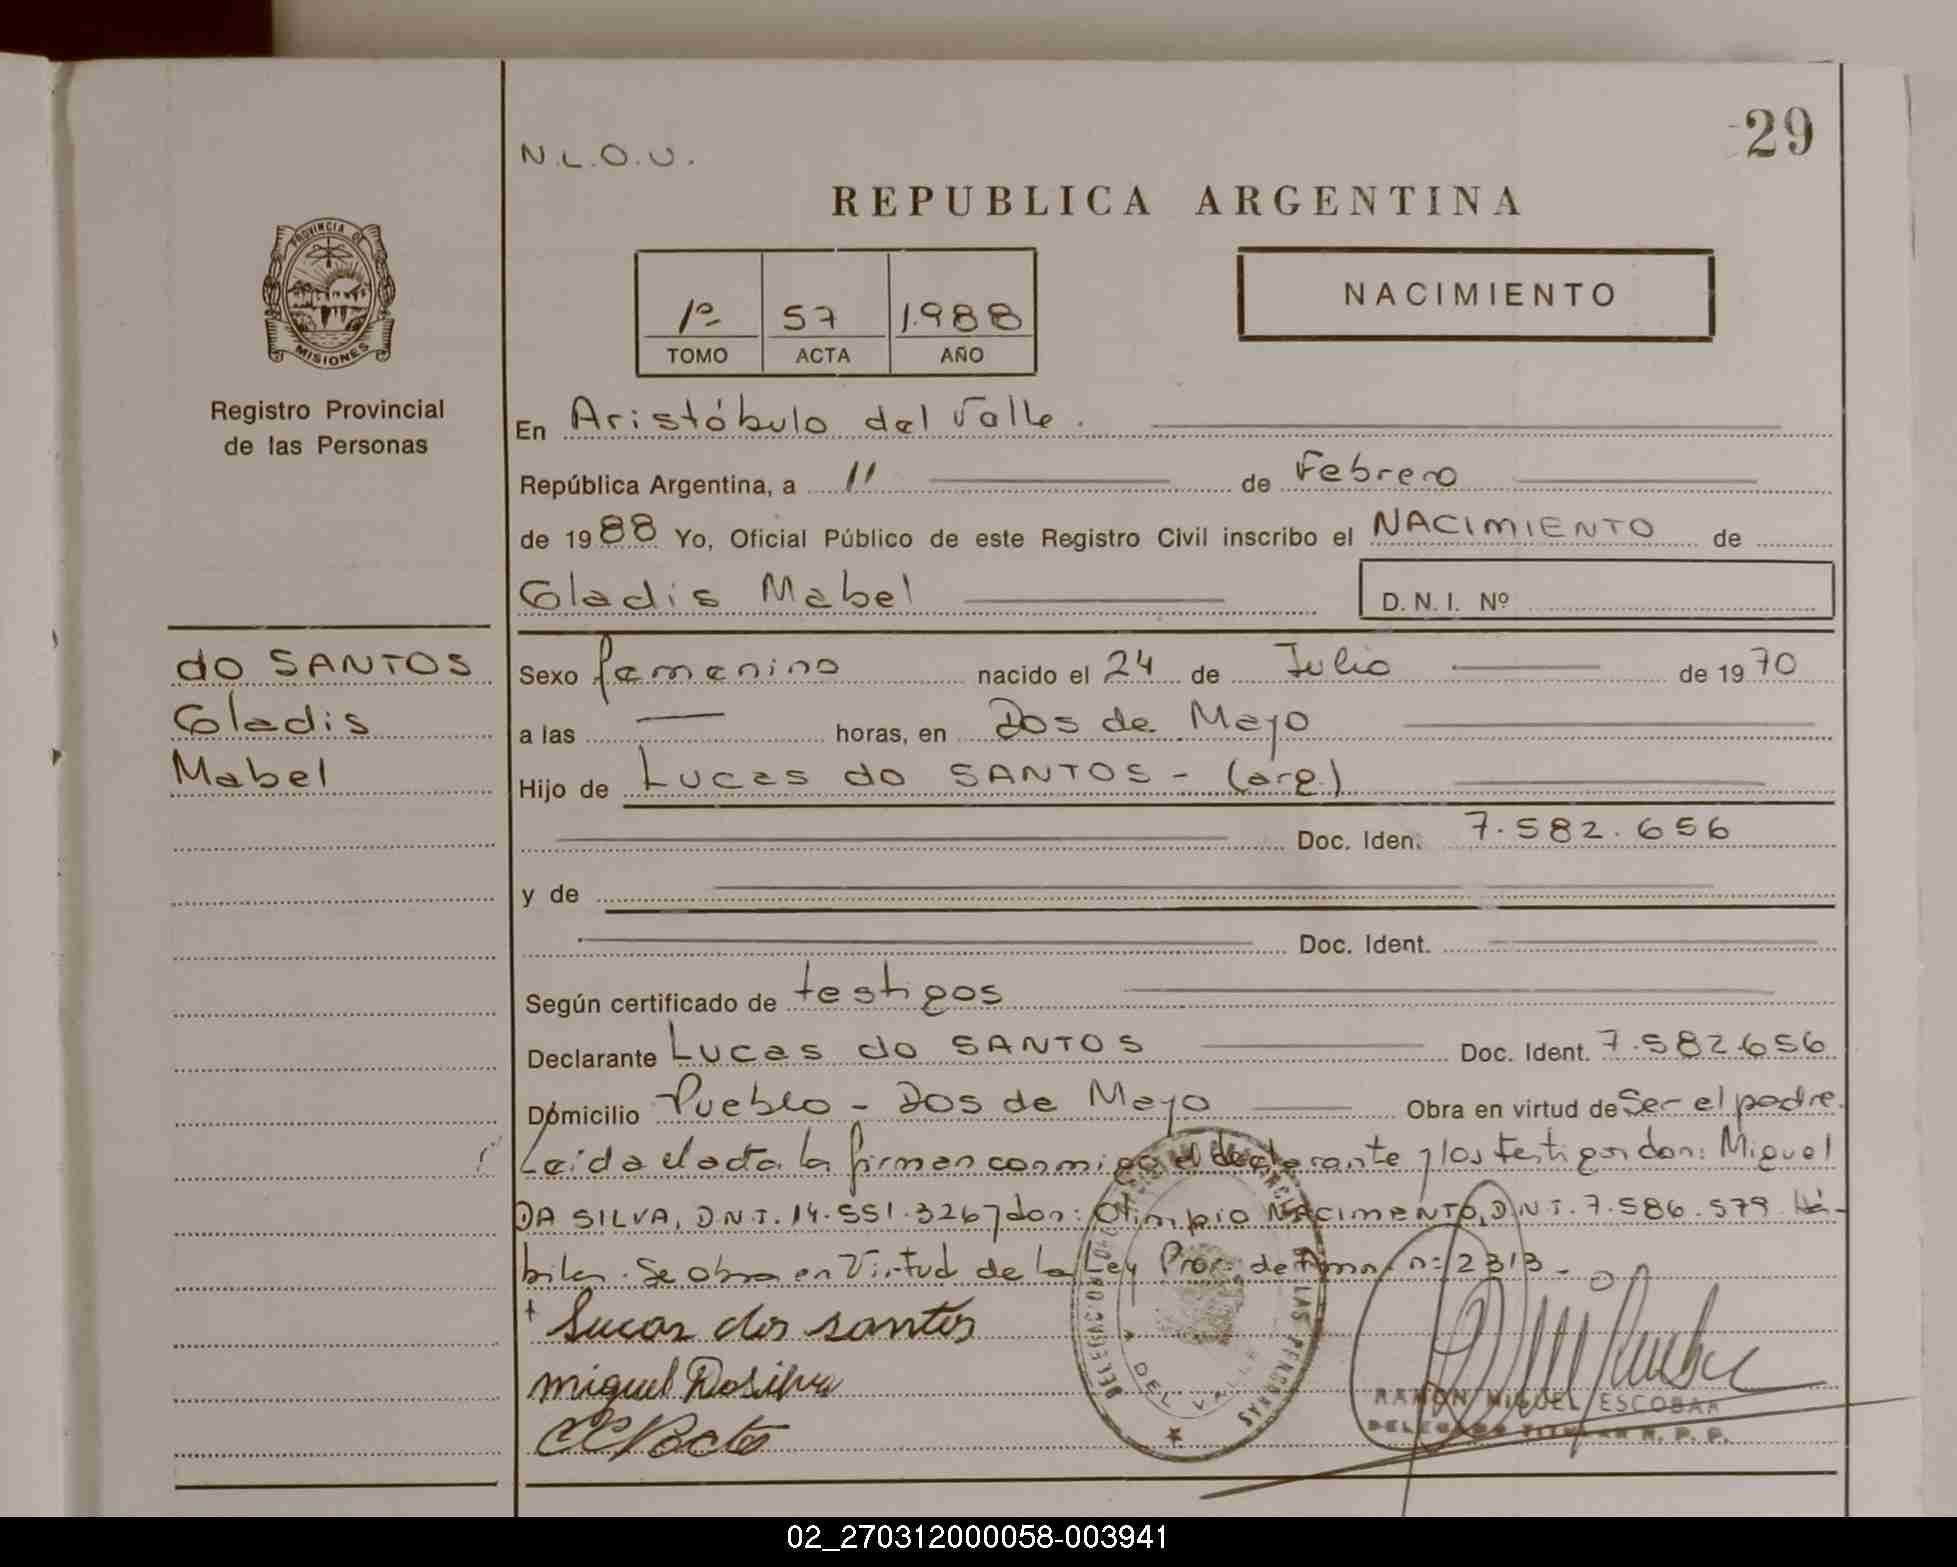 29
N.L.O.U.
REPUBLICA ARGENTINA
PROVINCIA DE
MISIONES
Registro Provincial
de las Personas
1º 57 1.988
TOMO ACTA AÑO
NACIMIENTO
En Aristóbulo del Valle.
República Argentina, a 11 de Febrero
de 1988 Yo, Oficial Público de este Registro Civil inscribo el NACIMIENTO de
Gladis Mabel D. N. I. Nº
do SANTOS
Gladis
Mabel
Sexo femenino nacido el 24 de Julio de 1970
a las horas, en Dos de Mayo
Hijo de Lucas do SANTOS - (arg.)
Doc. Iden. 7.582.656
y de
Doc. Ident.
Según certificado de testigos
Declarante Lucas do SANTOS Doc. Ident. 7.582.656
Domicilio Pueblo - Dos de Mayo Obra en virtud de Ser el padre.
Leída el acta la firman conmigo el declarante y los testigos don: Miguel
DA SILVA, D.N.I. 14.551.326 y don: Olimpio NACIMENTO, D.N.I. 7.586.579. Há-
biles. Se obra en Virtud de la Ley Prov. de Amn. nº 2313 -
Lucas dos santos
miguel Dasilva
DEL VALLE
RAMON MIGUEL ESCOBAR
DELEGADO TITULAR R. P. P.
02_270312000058-003941